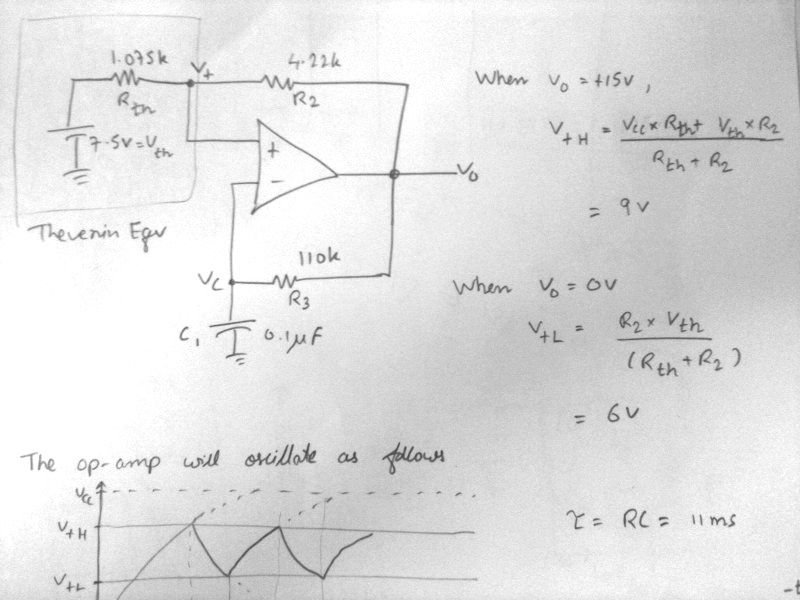 1.075k
V+
4.22k
Rth
R2
7.5V=Vth
+
-
Vo
Thevenin Eqv
110k
VC
R3
C1
0.1μF
When Vo = +15V,
V+H = Vcc x Rth + Vth x R2
Rth + R2
= 9V
When Vo = 0V
V+L = R2 x Vth
(Rth + R2)
= 6V
The op-amp will oscillate as follows
Vcc
V+H
V+L
τ = RC = 11ms